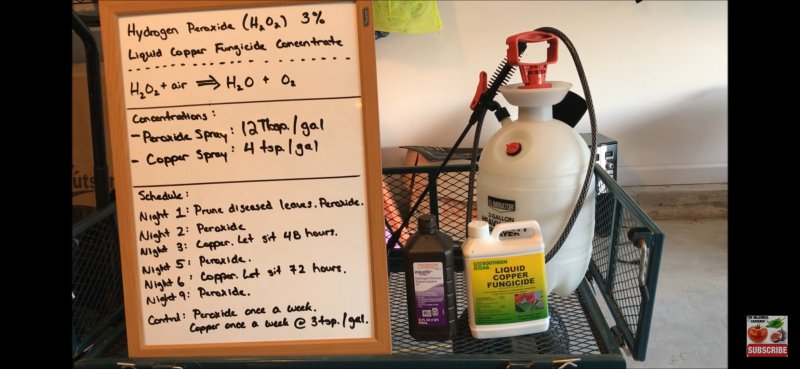 Hydrogen Peroxide (H2O2) 3%
Liquid Copper Fungicide Concentrate
H2O2 + air ⟹ H2O + O2
Concentrations:
- Peroxide Spray: 12 Tbsp./gal
- Copper Spray: 4 tsp./gal
Schedule:
Night 1: Prune diseased leaves. Peroxide.
Night 2: Peroxide
Night 3: Copper. Let sit 48 hours.
Night 5: Peroxide.
Night 6: Copper. Let sit 72 hours.
Night 9: Peroxide.
Control: Peroxide once a week.
Copper once a week @ 3 tsp./gal.
equate
SOUTHERN
AG
LIQUID
COPPER
FUNGICIDE
GALLON
THE MILLENNIAL
GARDENER
SUBSCRIBE